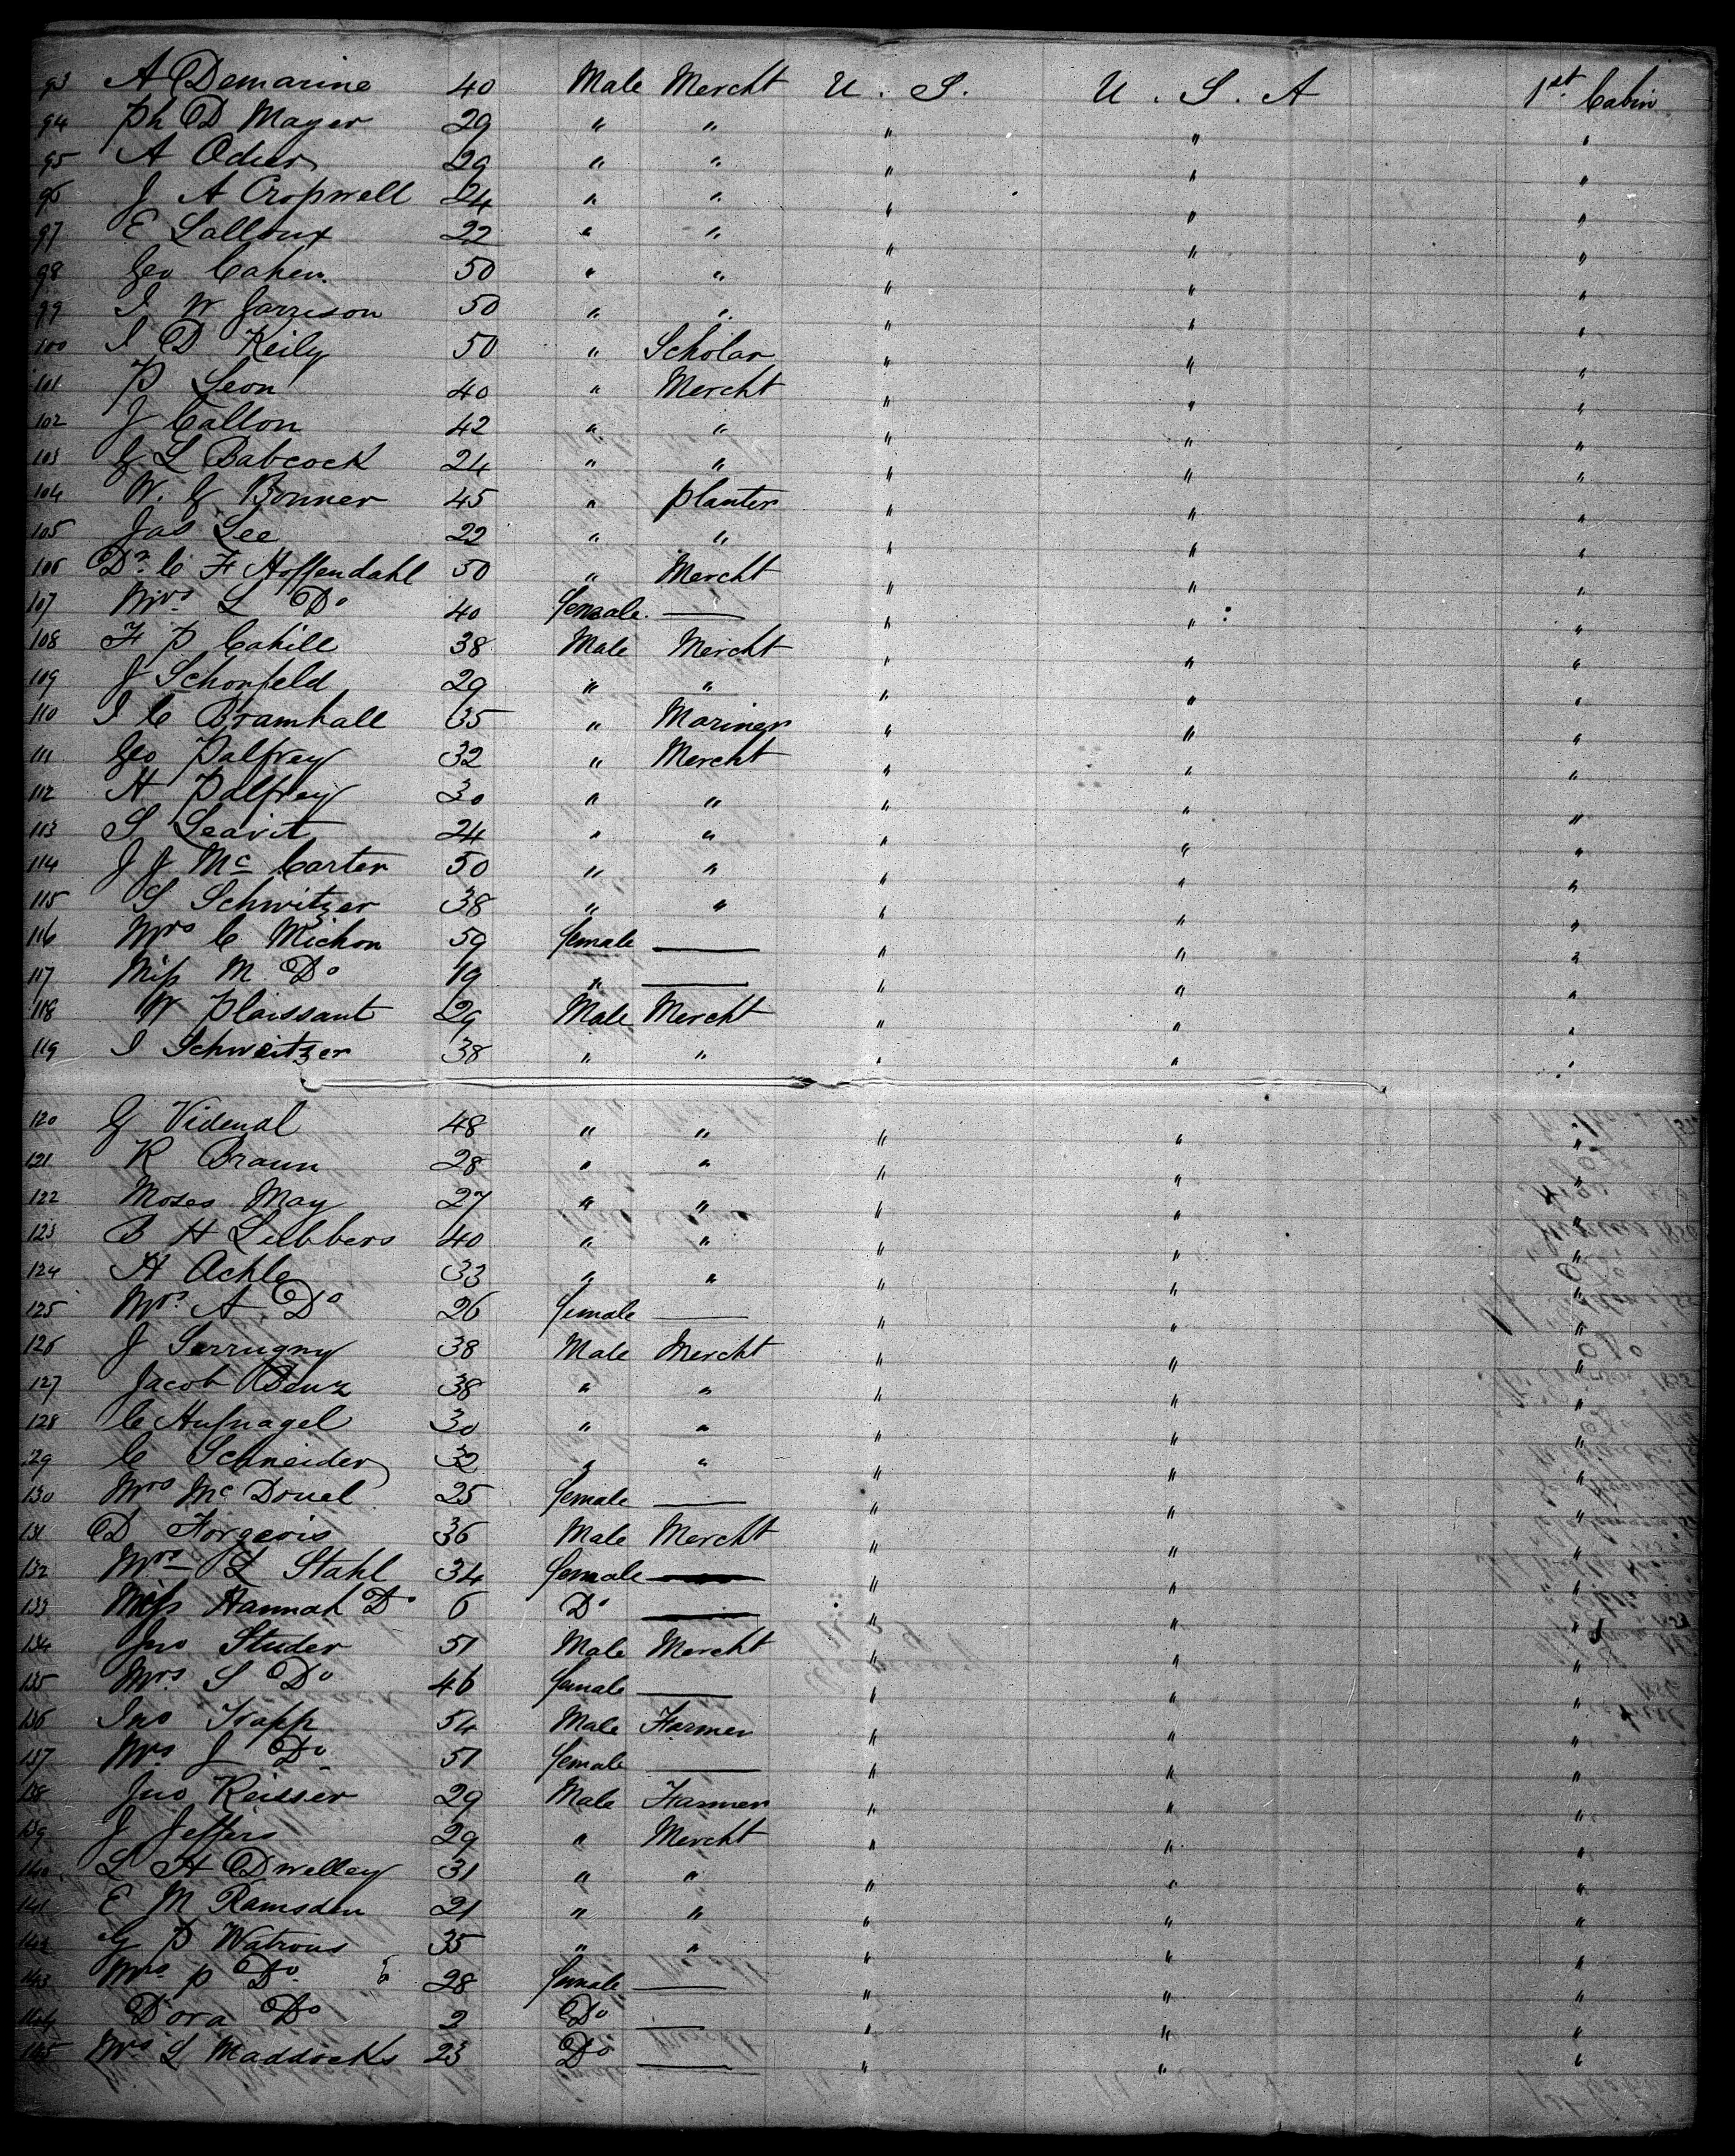 93 A Demarine 40 Male Mercht U. S. U. S. A 1st Cabin
94 Ph D Mayer 29 " " " " "
95 A Odier 29 " " " " "
96 J A Cropwell 24 " " " " "
97 E Lalloux 22 " " " " "
98 Geo Cahen 50 " " " " "
99 I W Garrison 50 " " " " "
100 I D Keily 50 " Scholar " " "
101 P Leon 40 " Mercht " " "
102 J Callon 42 " " " " "
103 G L Babcock 24 " " " " "
104 W. G Bonner 45 " Planter " " "
105 Jas Lee 22 " " " " "
106 Dr. C F Hoffendahl 50 " Mercht " " "
107 Mrs L Do 40 female — " " "
108 F P Cahill 38 Male Mercht " " "
109 J Schonfeld 29 " " " " "
110 I C Bramhall 35 " Mariner " " "
111 Geo Palfrey 32 " Mercht " " "
112 H Palfrey 30 " " " " "
113 S Leavit 24 " " " " "
114 J J Mc Carter 50 " " " " "
115 S Schwitzer 38 " " " " "
116 Mrs C Michon 59 female — " " "
117 Miss M Do 19 " — " " "
118 W Plaissant 29 Male Mercht " " "
119 I Schweitzer 38 " " " " "
120 G Videnal 48 " " " " "
121 R Braun 28 " " " " "
122 Moses May 27 " " " " "
123 B H Lubbers 40 " " " " "
124 H Achle 33 " " " " "
125 Mrs A Do 26 female — " " "
126 J Serrugny 38 Male Mercht " " "
127 Jacob Benz 38 " " " " "
128 C Hufnagel 30 " " " " "
129 C Schneider 32 " " " " "
130 Mrs Mc Douel 25 female — " " "
131 D Forgeois 36 Male Mercht " " "
132 Mrs L Stahl 34 female — " " "
133 Miss Hannah Do 6 Do — " " "
134 Jno Studer 51 Male Mercht " " "
135 Mrs S Do 46 female — " " "
136 Jno Trapp 54 Male Farmer " " "
137 Mrs J Do 51 female — " " "
138 Jno Reisser 29 Male Farmer " " "
139 J Jeffers 29 " Mercht " " "
140 L H Dwelley 31 " " " " "
141 E M Ramsden 21 " " " " "
142 G P Watrous 35 " " " " "
143 Mrs P Do 28 female — " " "
144 Dora Do 2 Do — " " "
145 Mrs L Maddocks 23 Do — " " "